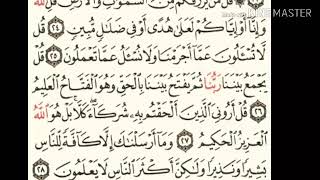 قُلْ مَن يَرْزُقُكُم مِّنَ ٱلسَّمَٰوَٰتِ وَٱلْأَرْضِ قُلِ ٱللَّهُ
وَإِنَّآ أَوْ إِيَّاكُمْ لَعَلَىٰ هُدًى أَوْ فِى ضَلَٰلٍ مُّبِينٍ ٢٤ قُل
لَّا تُسْـَٔلُونَ عَمَّآ أَجْرَمْنَا وَلَا نُسْـَٔلُ عَمَّا تَعْمَلُونَ ٢٥ قُلْ
يَجْمَعُ بَيْنَنَا رَبُّنَا ثُمَّ يَفْتَحُ بَيْنَنَا بِٱلْحَقِّ وَهُوَ ٱلْفَتَّاحُ ٱلْعَلِيمُ
٢٦ قُلْ أَرُونِىَ ٱلَّذِينَ أَلْحَقْتُم بِهِۦ شُرَكَآءَ كَلَّا بَلْ هُوَ ٱللَّهُ
ٱلْعَزِيزُ ٱلْحَكِيمُ ٢٧ وَمَآ أَرْسَلْنَٰكَ إِلَّا كَآفَّةً لِّلنَّاسِ
بَشِيرًا وَنَذِيرًا وَلَٰكِنَّ أَكْثَرَ ٱلنَّاسِ لَا يَعْلَمُونَ ٢٨
KINEMASTER